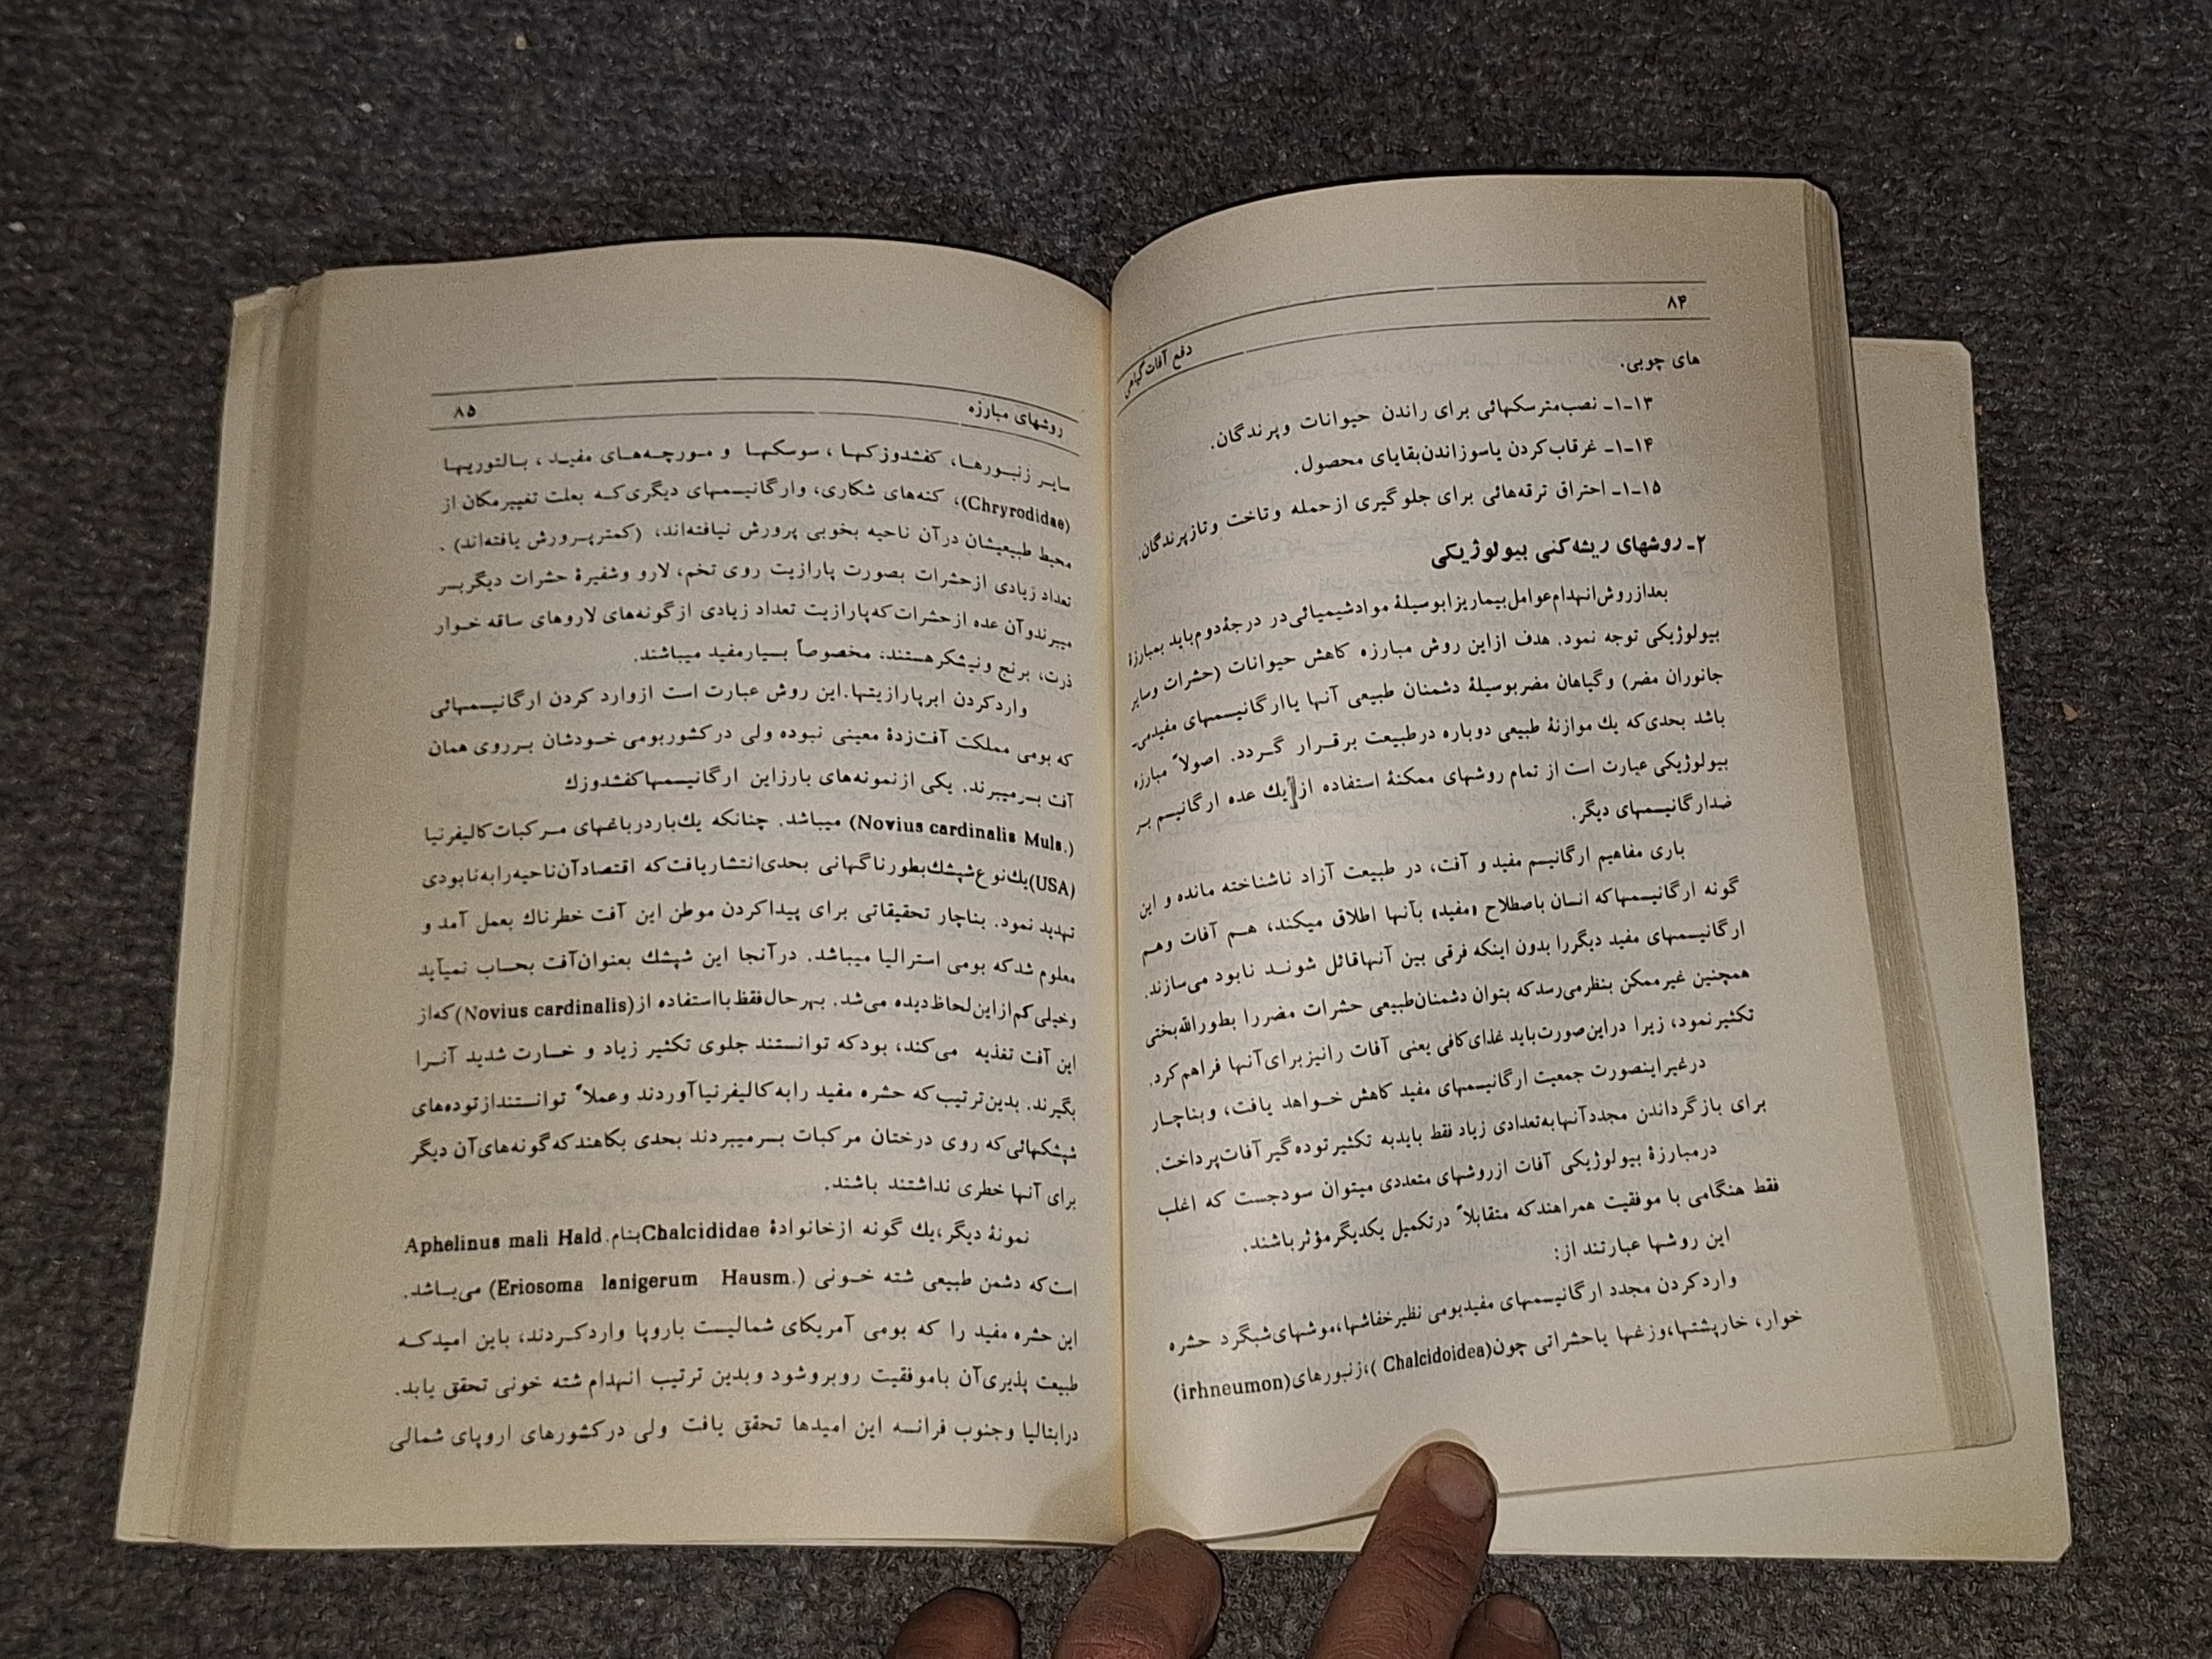 ۸۴
دفع آفات گیاهی
های چوبی.
۱۳-۱- نصب مترسکهائی برای راندن حیوانات وپرندگان.
۱۴-۱- غرقاب کردن یاسوزاندن بقایای محصول.
۱۵-۱- احتراق ترقه‌هائی برای جلوگیری ازحمله وتاخت وتازپرندگان.
۲- روشهای ریشه کنی بیولوژیکی
بعدازروش انهدام عوامل بیماریزابوسیلۀ موادشیمیائی‌در درجۀ دوم باید بمبارزۀ
بیولوژیکی توجه نمود. هدف ازاین روش مبارزه کاهش حیوانات (حشرات وسایر
جانوران مضر) وگیاهان مضربوسیلۀ دشمنان طبیعی آنها یاارگانیسمهای مفیدمی-
باشد بحدی‌که یك موازنۀ طبیعی دوباره درطبیعت برقرار گردد. اصولاً مبارزه
بیولوژیکی عبارت است از تمام روشهای ممکنۀ استفاده از یك عده ارگانیسم بر
ضدارگانیسمهای دیگر.
باری مفاهیم ارگانیسم مفید و آفت، در طبیعت آزاد ناشناخته مانده و این
گونه ارگانیسمهاکه انسان باصطلاح «مفید» بآنها اطلاق میکند، هم آفات وهم
ارگانیسمهای مفید دیگررا بدون اینکه فرقی بین آنهاقائل شوند نابود می‌سازند.
همچنین غیرممکن بنظرمی‌رسدکه بتوان دشمنان‌طبیعی حشرات مضررا بطورالله‌بختی
تکثیرنمود، زیرا دراین‌صورت‌باید غذای‌کافی یعنی آفات رانیزبرای‌آنها فراهم‌کرد.
درغیراینصورت جمعیت ارگانیسمهای مفید کاهش خواهد یافت، وبناچار
برای بازگرداندن مجددآنهابه‌تعدادی زیاد فقط بایدبه تکثیرتوده‌گیرآفات‌پرداخت.
درمبارزۀ بیولوژیکی آفات ازروشهای متعددی میتوان سودجست که اغلب
فقط هنگامی با موفقیت همراهندکه متقابلاً درتکمیل یکدیگرمؤثرباشند.
این روشها عبارتند از:
واردکردن مجدد ارگانیسمهای مفیدبومی نظیرخفاشها،موشهای‌شبگرد حشره
خوار، خارپشتها،وزغها یاحشراتی چون(Chalcidoidea )،زنبورهای(irhneumon)
روشهای مبارزه
۸۵
سایر زنبورها، کفشدوزکها، سوسکها و مورچه‌های مفید، بالتوریها
(Chryrodidae)، کنه‌های شکاری، وارگانیسمهای دیگری‌که بعلت تغییرمکان از
محیط طبیعیشان درآن ناحیه بخوبی پرورش نیافته‌اند، (کمترپرورش یافته‌اند) .
تعداد زیادی ازحشرات بصورت پارازیت روی تخم، لارو وشفیرۀ حشرات دیگربسر
میبرندوآن عده ازحشرات که‌پارازیت تعداد زیادی ازگونه‌های لاروهای ساقه خوار
ذرت، برنج ونیشکرهستند، مخصوصاً بسیارمفید میباشند.
واردکردن ابرپارازیتها.این روش عبارت است ازوارد کردن ارگانیسمهائی
که بومی مملکت آفت‌زدۀ معینی نبوده ولی درکشوربومی خودشان برروی همان
آفت بسرمیبرند. یکی ازنمونه‌های بارزاین ارگانیسمهاکفشدوزك
(Novius cardinalis Muls.) میباشد. چنانکه یك‌باردرباغهای مرکبات‌کالیفرنیا
(USA)یك‌نوع‌شپشك‌بطورناگهانی بحدی‌انتشاریافت‌که اقتصادآن‌ناحیه‌رابه‌نابودی
تهدید نمود. بناچار تحقیقاتی برای پیداکردن موطن این آفت خطرناك بعمل آمد و
معلوم شدکه بومی استرالیا میباشد. درآنجا این شپشك بعنوان‌آفت بحساب نمیآید
وخیلی‌کم‌ازاین‌لحاظ‌دیده می‌شد. بهرحال‌فقط‌بااستفاده از(Novius cardinalis)که‌از
این آفت تغذیه می‌کند، بودکه توانستند جلوی تکثیر زیاد و خسارت شدید آنرا
بگیرند. بدین‌ترتیب‌که حشره مفید رابه‌کالیفرنیاآوردند وعملاً توانستندازتوده‌های
شپشکهائی‌که روی درختان مرکبات بسرمیبردند بحدی بکاهندکه‌گونه‌های‌آن دیگر
برای آنها خطری نداشتند باشند.
نمونۀ دیگر،یك گونه ازخانوادۀ Chalcididaeبنام.Aphelinus mali Hald
است‌که دشمن طبیعی شته خونی (Eriosoma lanigerum Hausm.) می‌باشد.
این حشره مفید را که بومی آمریکای شمالیست باروپا واردکردند، باین امیدکه
طبیعت پذیری‌آن باموفقیت روبروشود وبدین ترتیب انهدام شته خونی تحقق یابد.
درایتالیا وجنوب فرانسه این امیدها تحقق یافت ولی درکشورهای اروپای شمالی